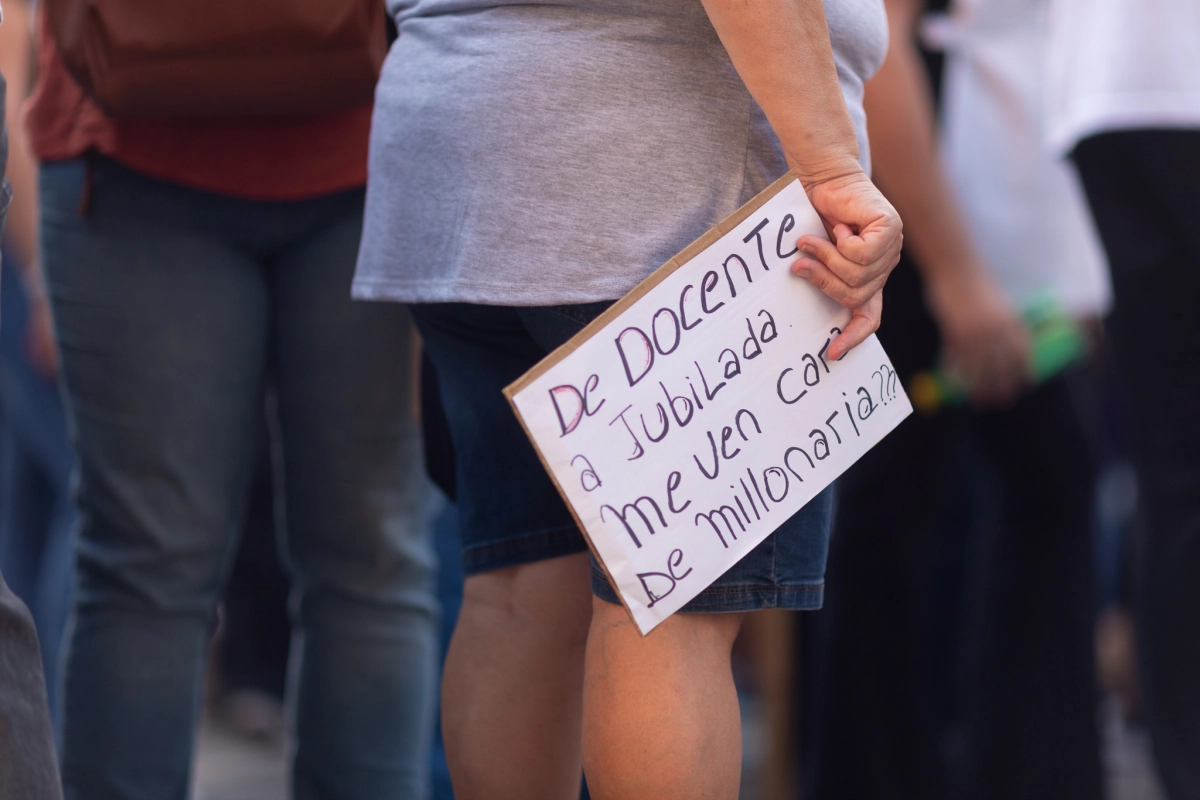 De DOCenTe
a JubiLada
me ven cara
De millonaria???